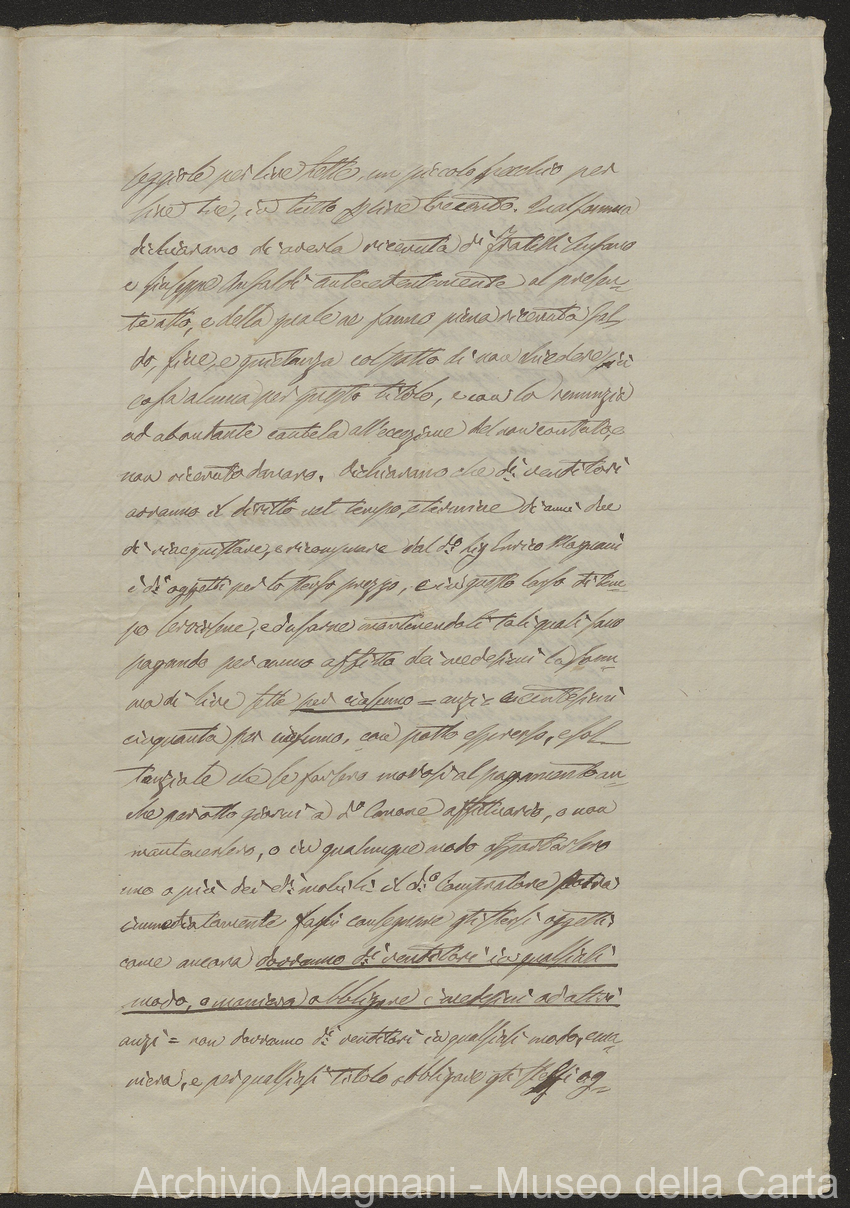 seggiole per lire sette, un piccolo specchio per
lire tre, in tutto p. lire trecento. Qual somma
dichiarano di averla ricevuta di Fratelli
e Giuseppe Ansaldi antecedentemente al presen=
te atto, e della quale ne fanno piena ricevuta sal=
do, fine, e quietanza col patto di non chiedere più
cosa alcuna per questo titolo, e con la renunzia
ad abondante cautela all'eccezione del non contato, e
non ricevuto danaro. Dichiarano che di venditori
avranno il diritto nel tempo, e termine di anni due
di riacquistare, e ricomprare dal do sig Enrico Magnani
i di oggetti per lo stesso prezzo, e in questo lasso di tem=
po servirsene, ed usarne mantenendoli tali quali sono
pagando per annuo affitto dei medesimi la som=
ma di lire sette per ciascuno = anzi = e centesimi
cinquanta per ciascuno, con patto espresso, e sos=
tanziale che se fossero morosi al pagamento an=
che per otto giorni a do Canone affittuario, o non
mantenessero, o in qualunque modo asportassero
uno o più dei di mobili il do Compratore potrà
immediatamente farsi consegnare gli stessi oggetti
come ancora dovranno di venditori in qualsiasi
modo, o maniera obbligare i medesimi ad altri
anzi = non dovranno di venditori in qualsiasi modo, e ma=
niera, e per qualsiasi titolo obbligare gli stessi og=
Archivio Magnani - Museo della Carta